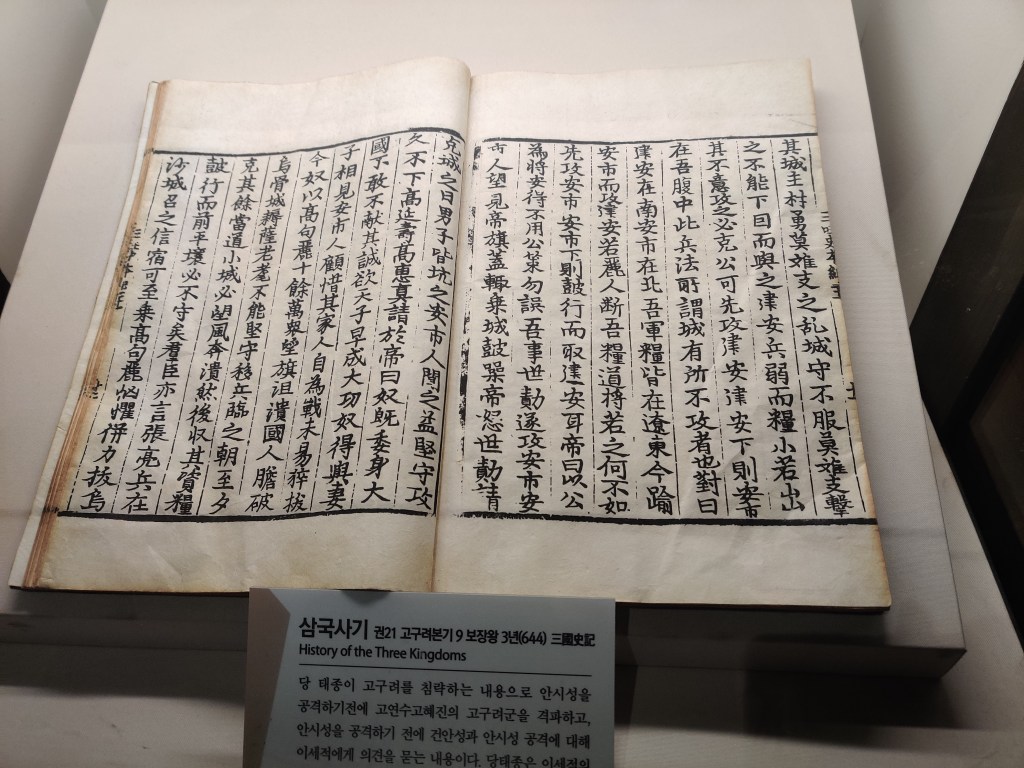 其城主村勇莫难支之乱城守不服莫难支擊
之不能下因而與之津安兵弱而糧小若出
其不意攻之必克公可先攻津安津安下則安市
在吾腹中此兵法所謂城有所不攻者也對曰
津安在南安市在北吾軍糧皆在遼東今踰
安市而攻建安若麗人断吾糧道将若之何不如
先攻安市安市下則鼓行而取建安耳帝曰以公
為將安得不用公策勿誤吾事世勣遂攻安市安
市人望見帝旗蓋輙乗城鼓譟帝怒世勣請
克城之日男子皆坑之安市人聞之益堅守攻
久不下高延壽高惠真請於帝曰奴旣委身大
國不敢不献其誠欲天子早成大功奴得與妻
子相見安市人顧惜其家人自為戰未易猝拔
今奴以高句麗十餘萬衆望旗沮潰國人膽破
烏骨城耨薩老耄不能堅守移兵臨之朝至夕
克其餘當道小城必望風奔潰然後収其資糧
鼓行而前平壤必不守矣君臣亦言張亮兵在
沙城召之信宿可至乗高句麗恟懼併力拔烏
삼국사기 권21 고구려본기 9 보장왕 3년(644) 三國史記
History of the Three Kingdoms
당 태종이 고구려를 침략하는 내용으로 안시성을
공격하기전에 고연수고혜진의 고구려군을 격파하고,
안시성을 공격하기 전에 건안성과 안시성 공격에 대해
이세적에게 의견을 묻는 내용이다. 당태종은 이세적의